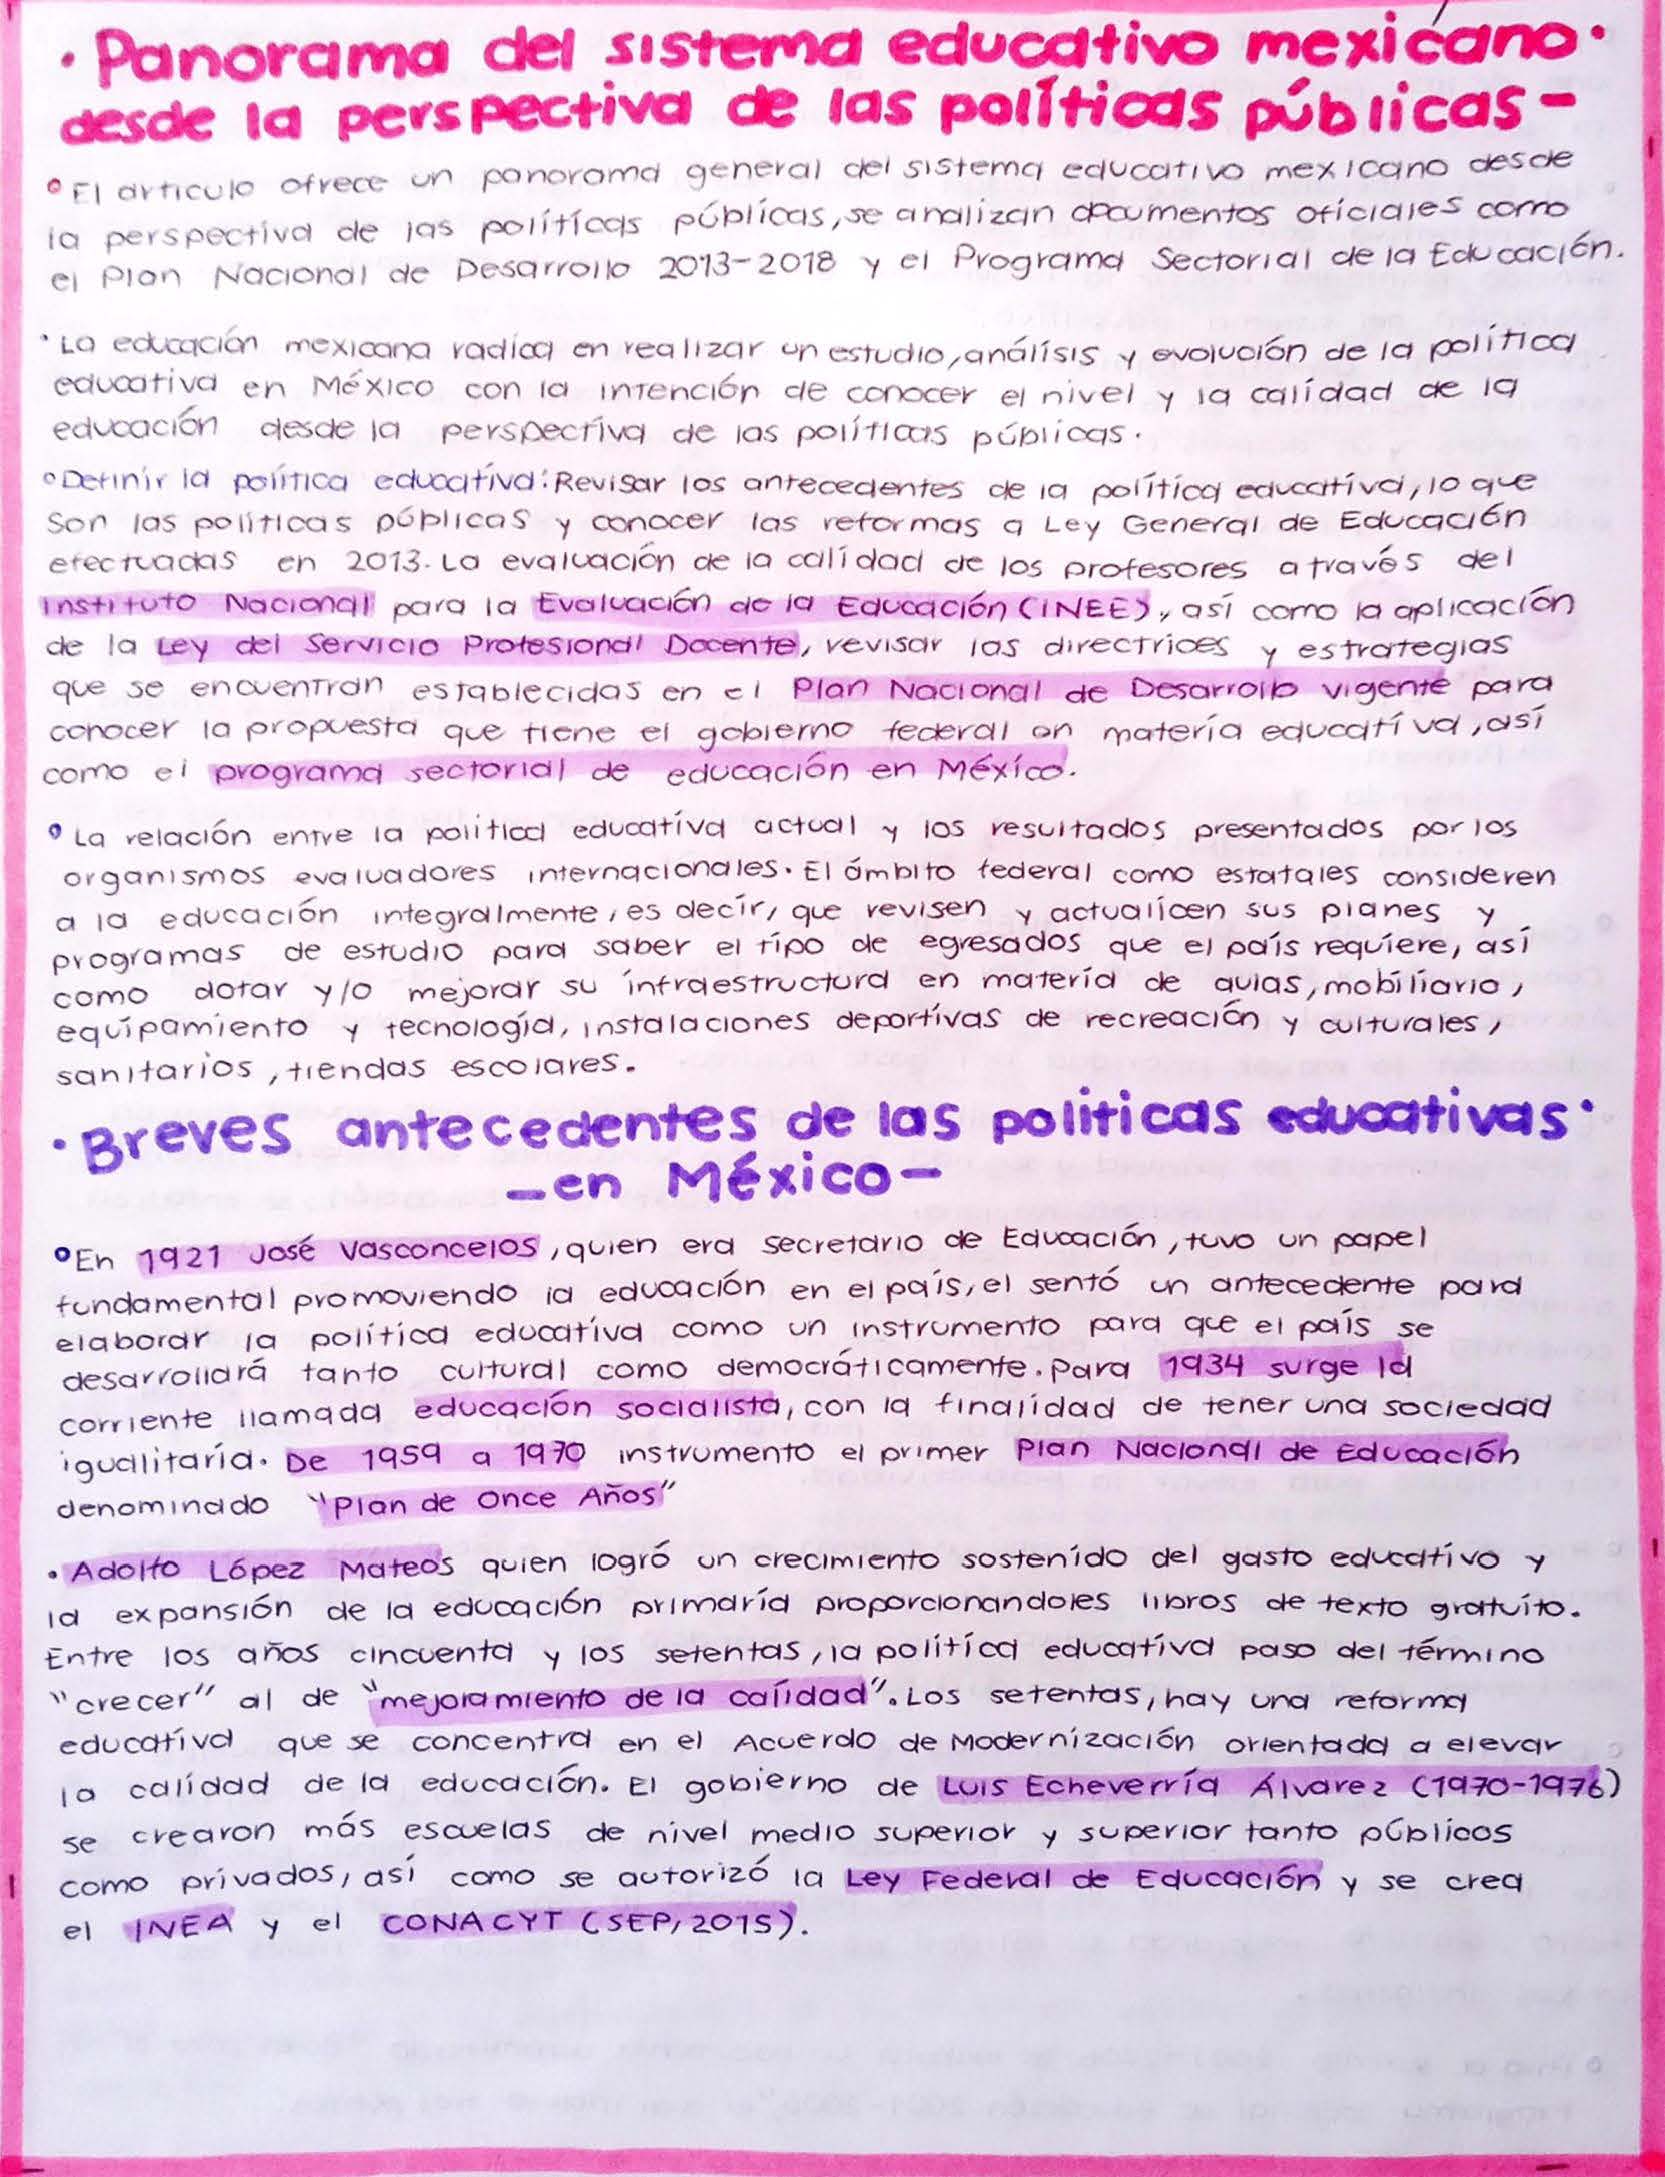 · Panorama del sistema educativo mexicano ·
desde la perspectiva de las políticas públicas -
° El articulo ofrece un panorama general del sistema educativo mexicano desde
la perspectiva de las políticas públicas, se analizan documentos oficiales como
el Plan Nacional de Desarrollo 2013-2018 y el Programa Sectorial de la Educación.
· La educación mexicana radica en realizar un estudio, análisis y evolución de la política
educativa en México con la intención de conocer el nivel y la calidad de la
educación desde la perspectiva de las políticas públicas.
° Definir la política educativa: Revisar los antecedentes de la política educativa, lo que
Son las políticas públicas y conocer las reformas a Ley General de Educación
efectuadas en 2013. La evaluación de la calidad de los profesores a través del
Instituto Nacional para la Evaluación de la Educación (INEE), así como la aplicación
de la Ley del Servicio Profesional Docente, revisar las directrices y estrategias
que se encuentran establecidas en el Plan Nacional de Desarrollo vigente para
conocer la propuesta que tiene el gobierno federal en materia educativa, así
como el programa sectorial de educación en México.
° La relación entre la politica educativa actual y los resultados presentados por los
organismos evaluadores internacionales. El ámbito federal como estatales consideren
a la educación integralmente, es decir, que revisen y actualicen sus planes y
programas de estudio para saber el tipo de egresados que el país requiere, así
como dotar y/o mejorar su infraestructura en materia de aulas, mobiliario,
equipamiento y tecnología, instalaciones deportivas de recreación y culturales,
sanitarios, tiendas escolares.
· Breves antecedentes de las politicas educativas ·
- en México -
° En 1921 José Vasconcelos, quien era secretario de Educación, tuvo un papel
fundamental promoviendo la educación en el país, el sentó un antecedente para
elaborar la política educativa como un instrumento para que el país se
desarrollará tanto cultural como democráticamente. Para 1934 surge la
corriente llamada educación socialista, con la finalidad de tener una sociedad
igualitaría. De 1959 a 1970 instrumento el primer Plan Nacional de Educación
denominado "Plan de Once Años"
· Adolfo López Mateos quien logró un crecimiento sostenido del gasto educativo y
la expansión de la educación primaría proporcionandoles libros de texto gratuito.
Entre los años cincuenta y los setentas, la política educativa paso del término
"crecer" al de "mejoramiento de la calidad". Los setentas, hay una reforma
educativa que se concentra en el Acuerdo de Modernización orientada a elevar
la calidad de la educación. El gobierno de Luis Echeverría Álvarez (1970-1976)
se crearon más escuelas de nivel medio superior y superior tanto públicos
como privados, así como se autorizó la Ley Federal de Educación y se crea
el INEA y el CONACYT (SEP, 2015).